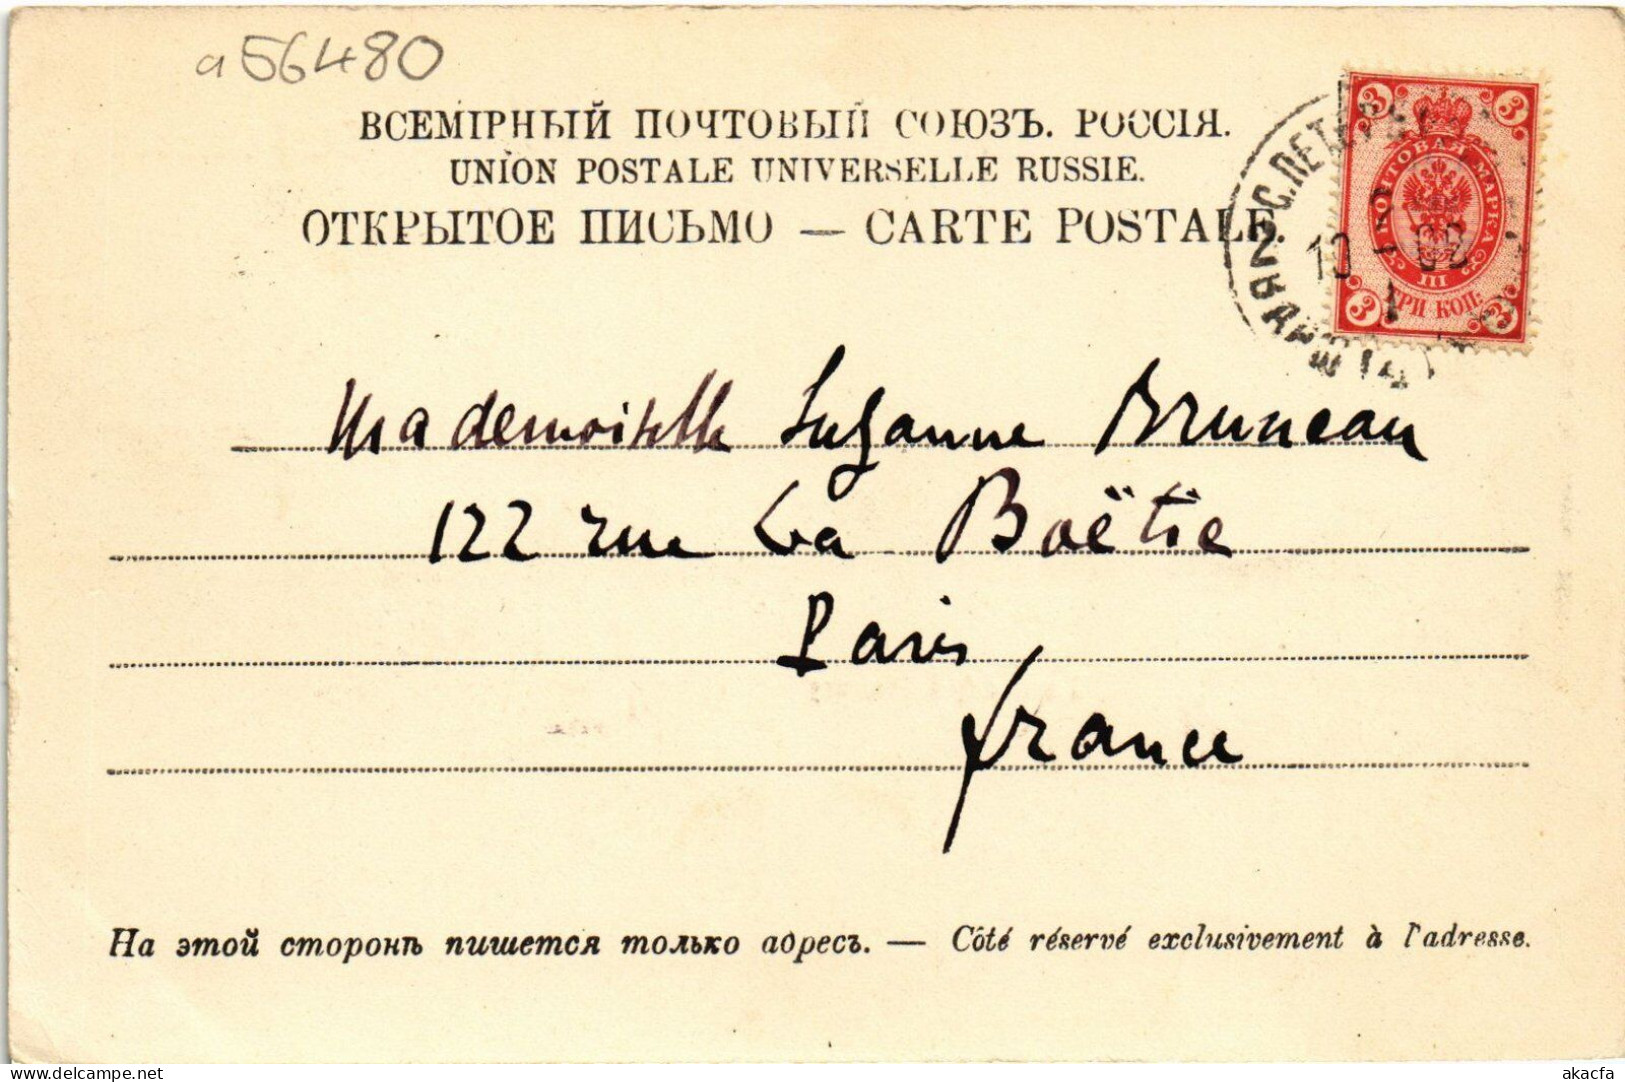 a56480
ВСЕМІРНЫЙ ПОЧТОВЫЙ СОЮЗЪ. РОССІЯ.
UNION POSTALE UNIVERSELLE RUSSIE.
ОТКРЫТОЕ ПИСЬМО — CARTE POSTALE.
3 3
ПОЧТОВАЯ МАРКА
III
ТРИ КОП.
3 3
С.ПЕТЕРБ
10
Mademoiselle Suzanne Bruneau
122 rue La Boëtie
Paris
France
На этой сторонѣ пишется только адресъ. — Côté réservé exclusivement à l'adresse.
akacfa